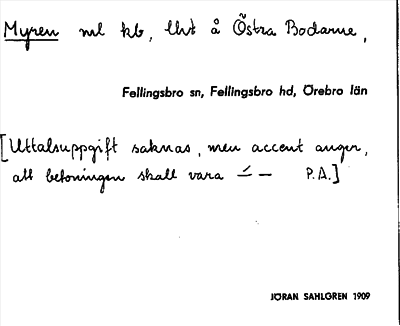 Myren ml kb, lht å Östra Bodarne,
Fellingsbro sn, Fellingsbro hd, Örebro län
[Uttalsuppgift saknas, men accent anger,
att betoningen skall vara –́ – P.A.]
JÖRAN SAHLGREN 1909